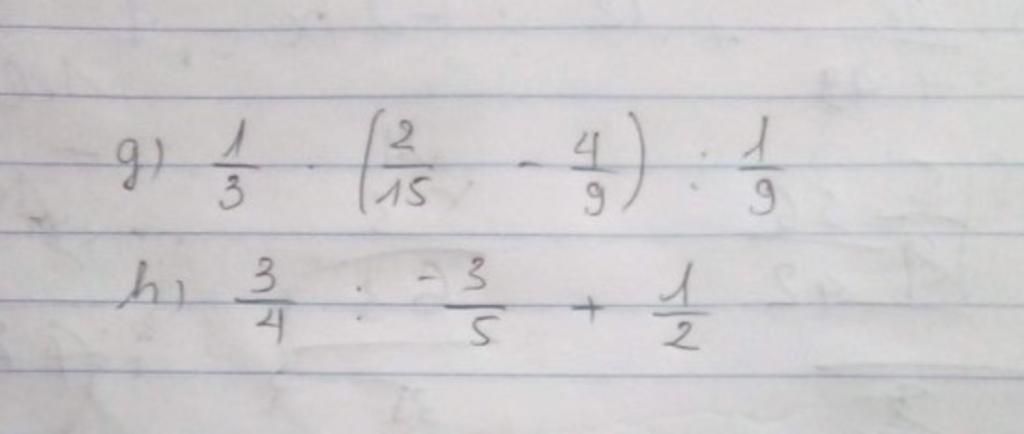 g) 1/3 . (2/15 - 4/9) : 1/9
h) 3/4 : -3/5 + 1/2